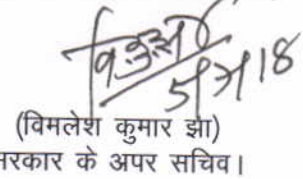 वि.कु.झा
5/7/18
(विमलेश कुमार झा)
सरकार के अपर सचिव।